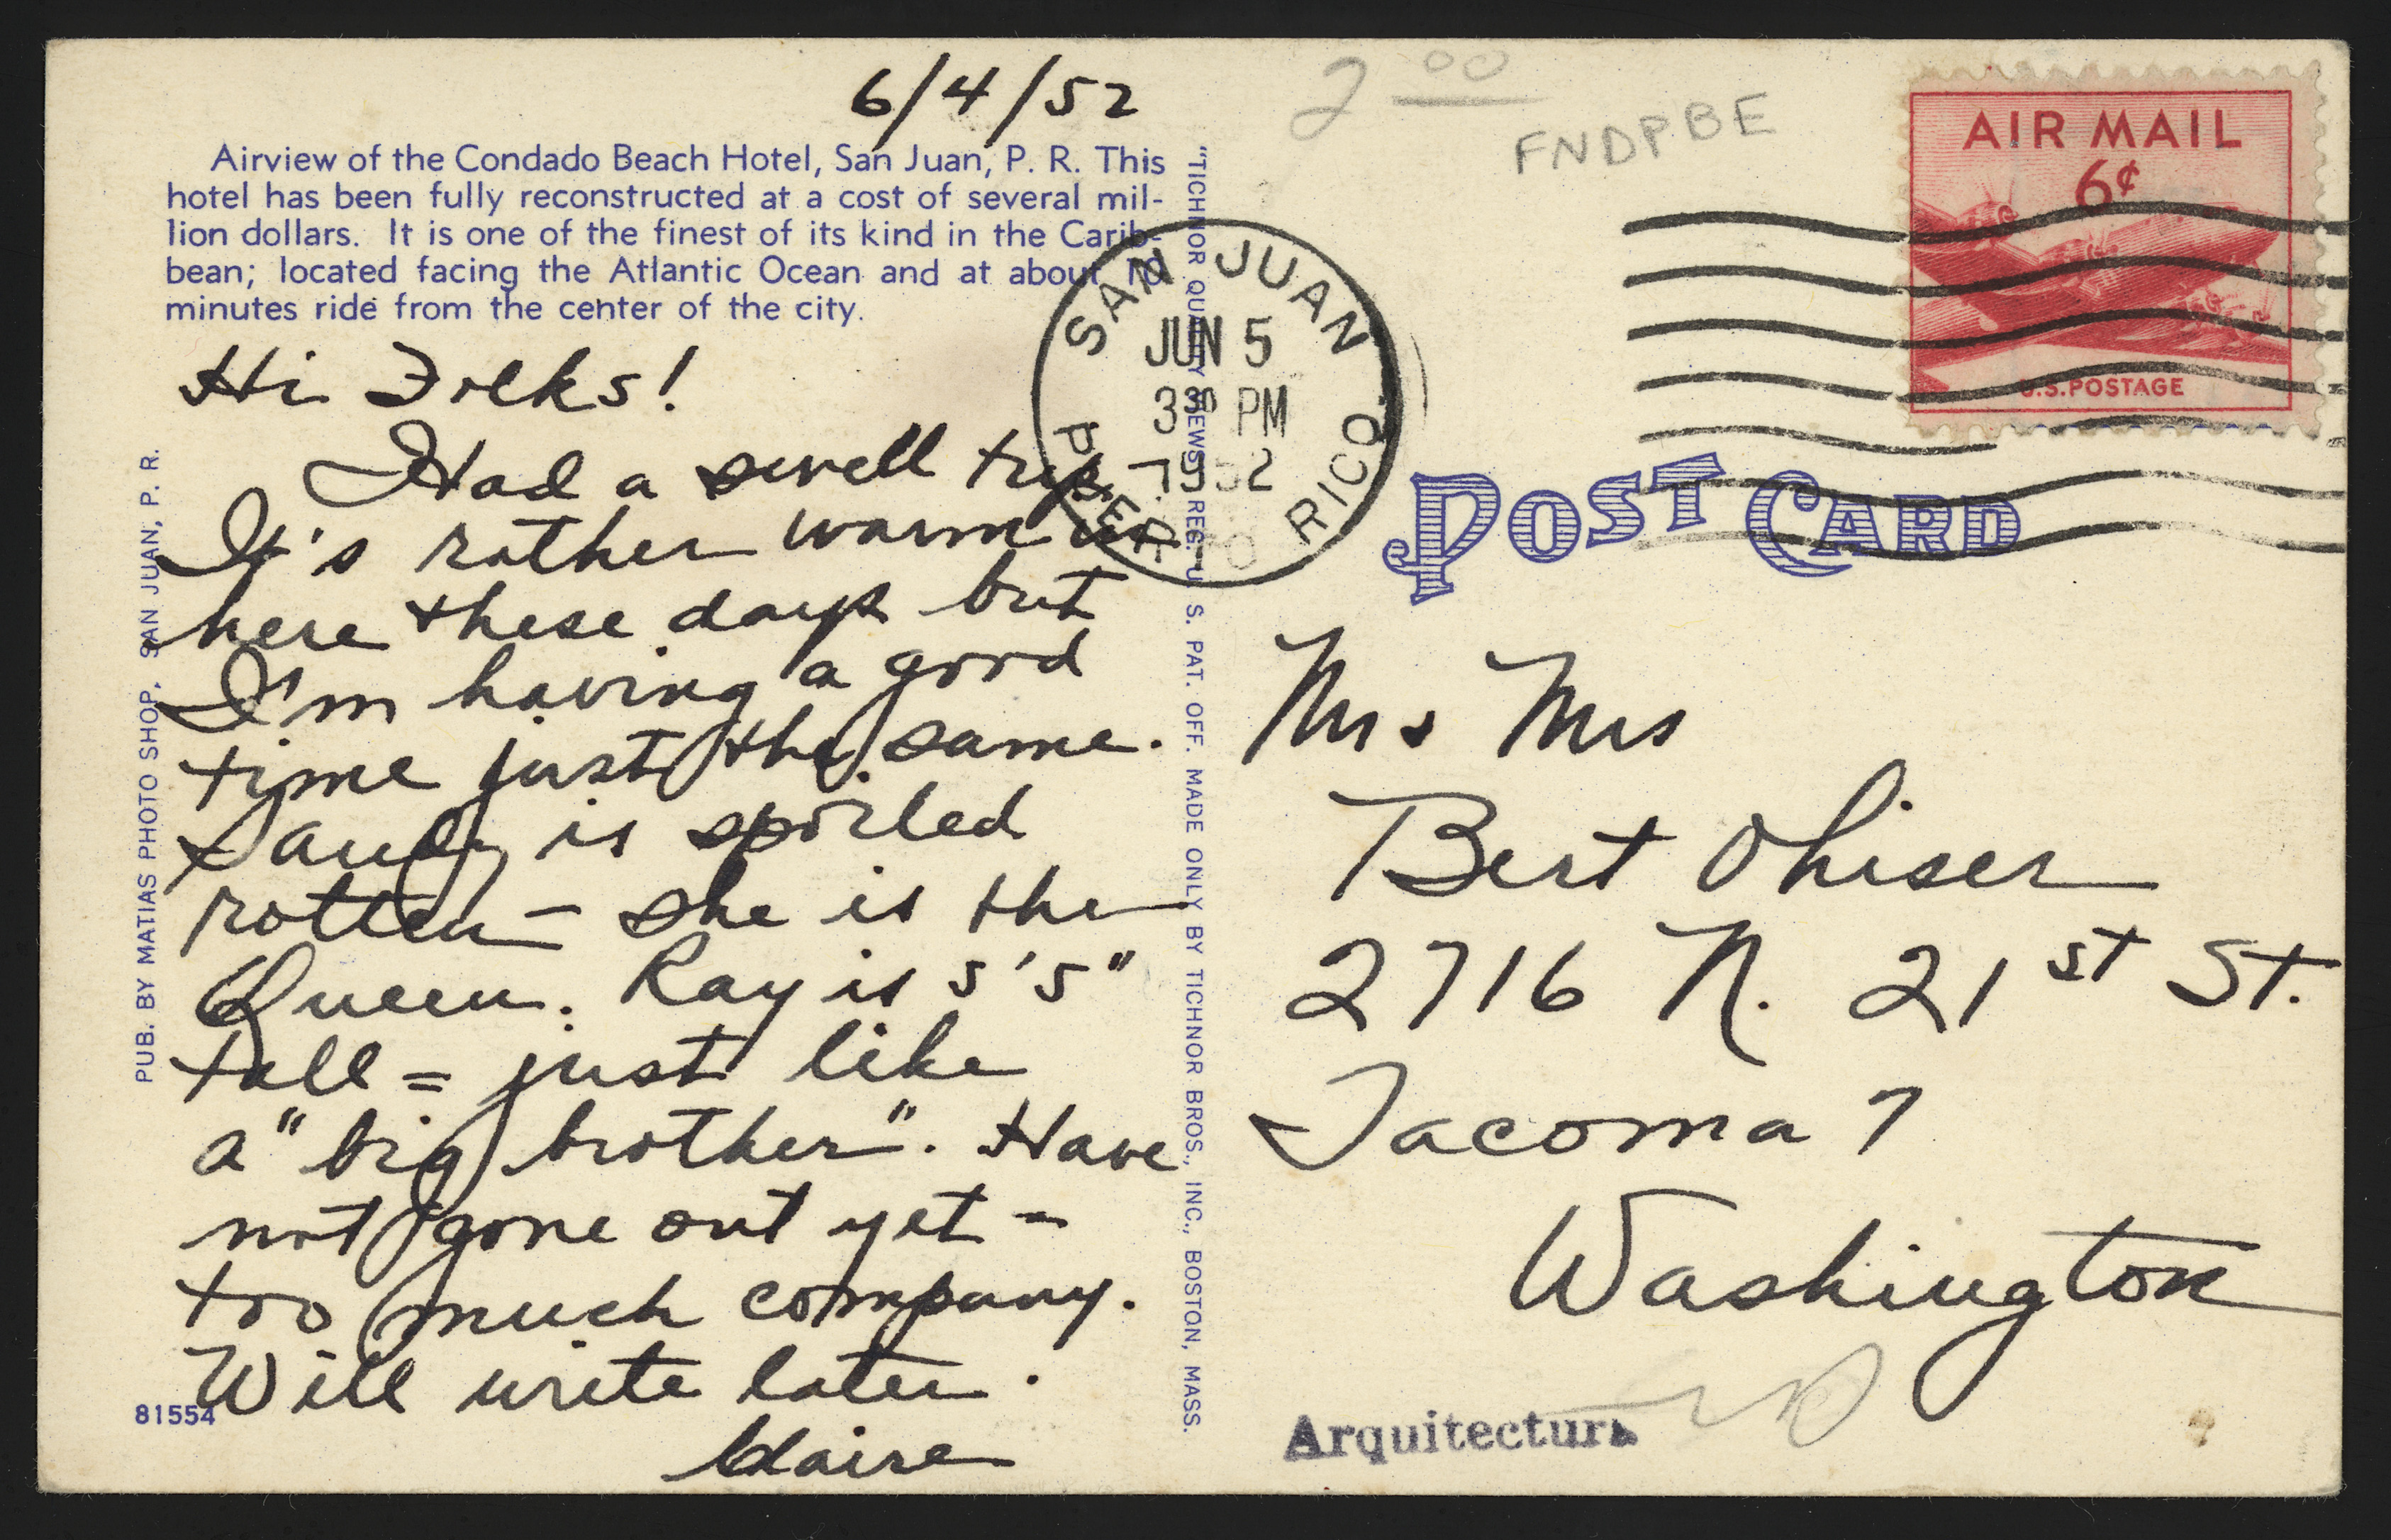 6/4/52
Airview of the Condado Beach Hotel, San Juan, P. R. This
hotel has been fully reconstructed at a cost of several mil-
lion dollars. It is one of the finest of its kind in the Carib-
bean; located facing the Atlantic Ocean and at about 10
minutes ride from the center of the city.
Hi Folks!
Had a swell trip.
It's rather warm
here these days but
I'm having a good
time just the same.
Sandy is spoiled
rotten – she is the
Queen. Ray is 5'5"
tall = just like
a "big brother". Have
not gone out yet –
too much company.
Will write later.
Claire
81554
PUB. BY MATIAS PHOTO SHOP, SAN JUAN, P. R.
"TICHNOR QUALITY VIEWS," REG. U. S. PAT. OFF. MADE ONLY BY TICHNOR BROS., INC., BOSTON, MASS.
2 00
FNDPBE
AIR MAIL
6¢
U.S.POSTAGE
SAN JUAN
JUN 5
3 30 PM
1952
PUERTO RICO
POST CARD
Mr & Mrs
Bert Ohiser
2716 N. 21st St.
Tacoma 7
Washington
Arquitectura